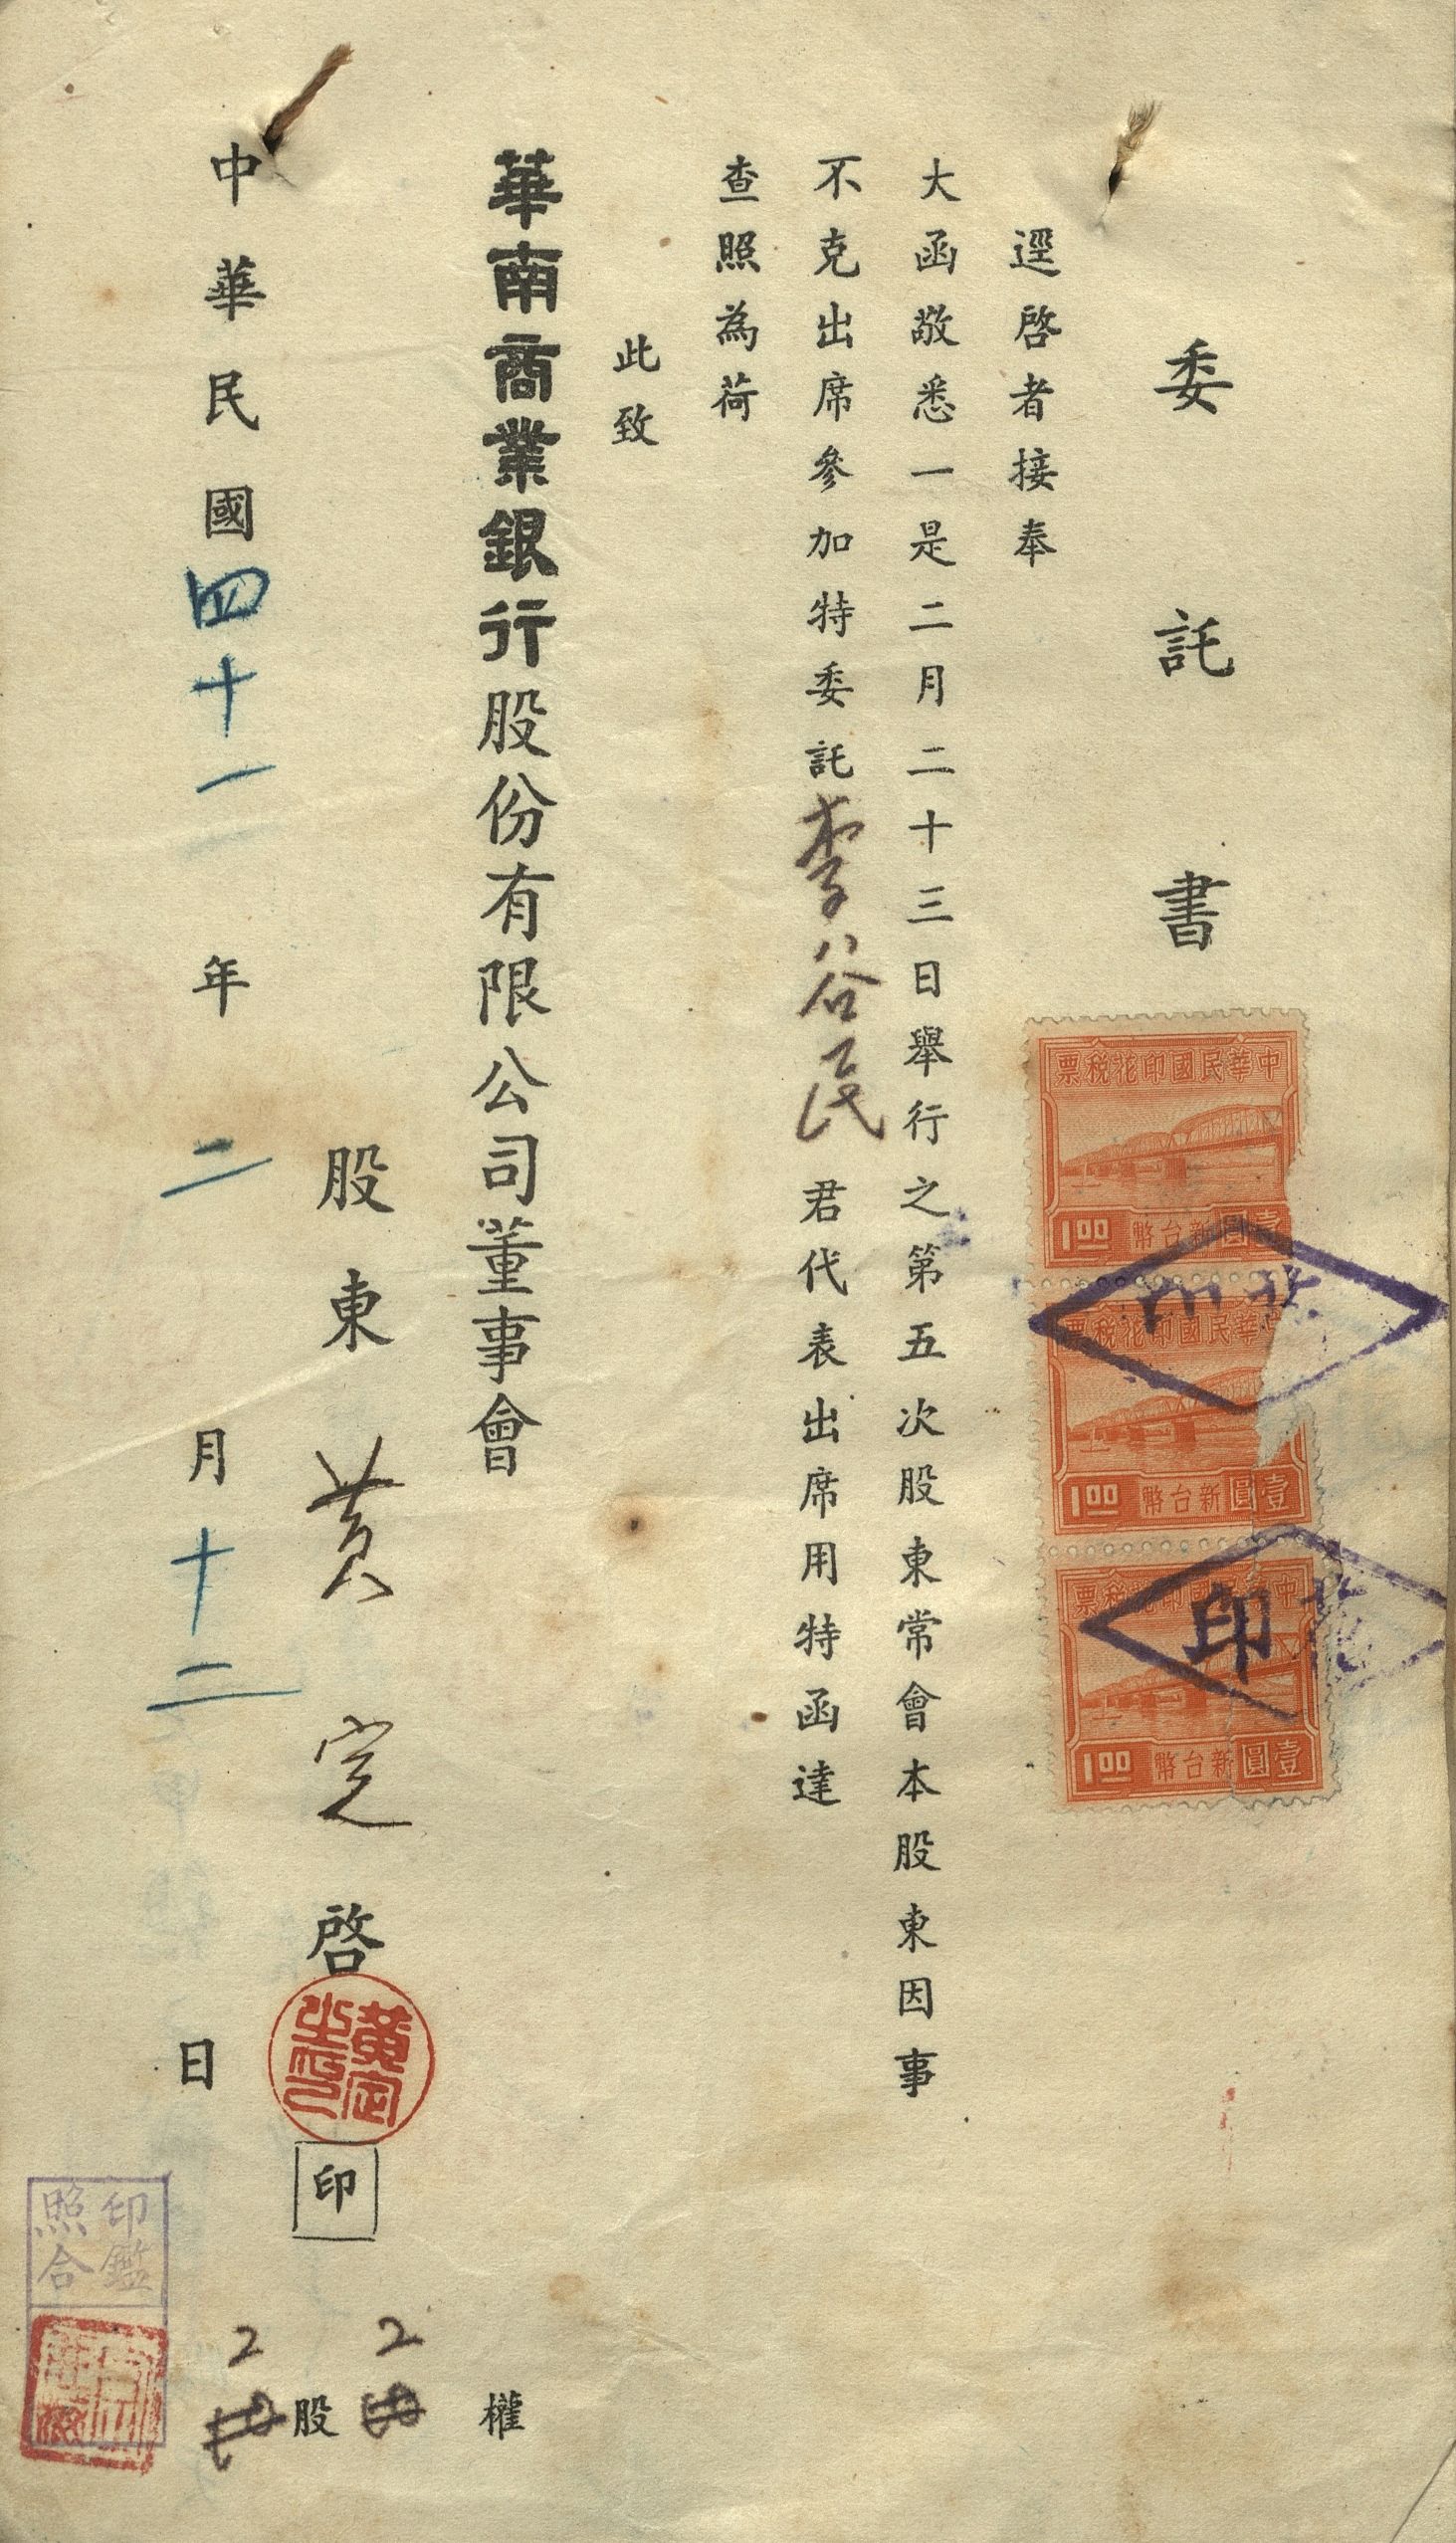 委託書
逕啓者接奉
大函敬悉一是二月二十三日舉行之第五次股東常會本股東因事
不克出席參加特委託李谷民君代表出席用特函達
查照為荷
此致
華南商業銀行股份有限公司董事會
股東黄定啓
印
中華民國四十一年二月十二日
權
2
股
2
中華民國印花稅票
壹圓新台幣
1.00
中華民國印花稅票
壹圓新台幣
1.00
中華民國印花稅票
壹圓新台幣
1.00
印
黃定
之印
印鑑
照合